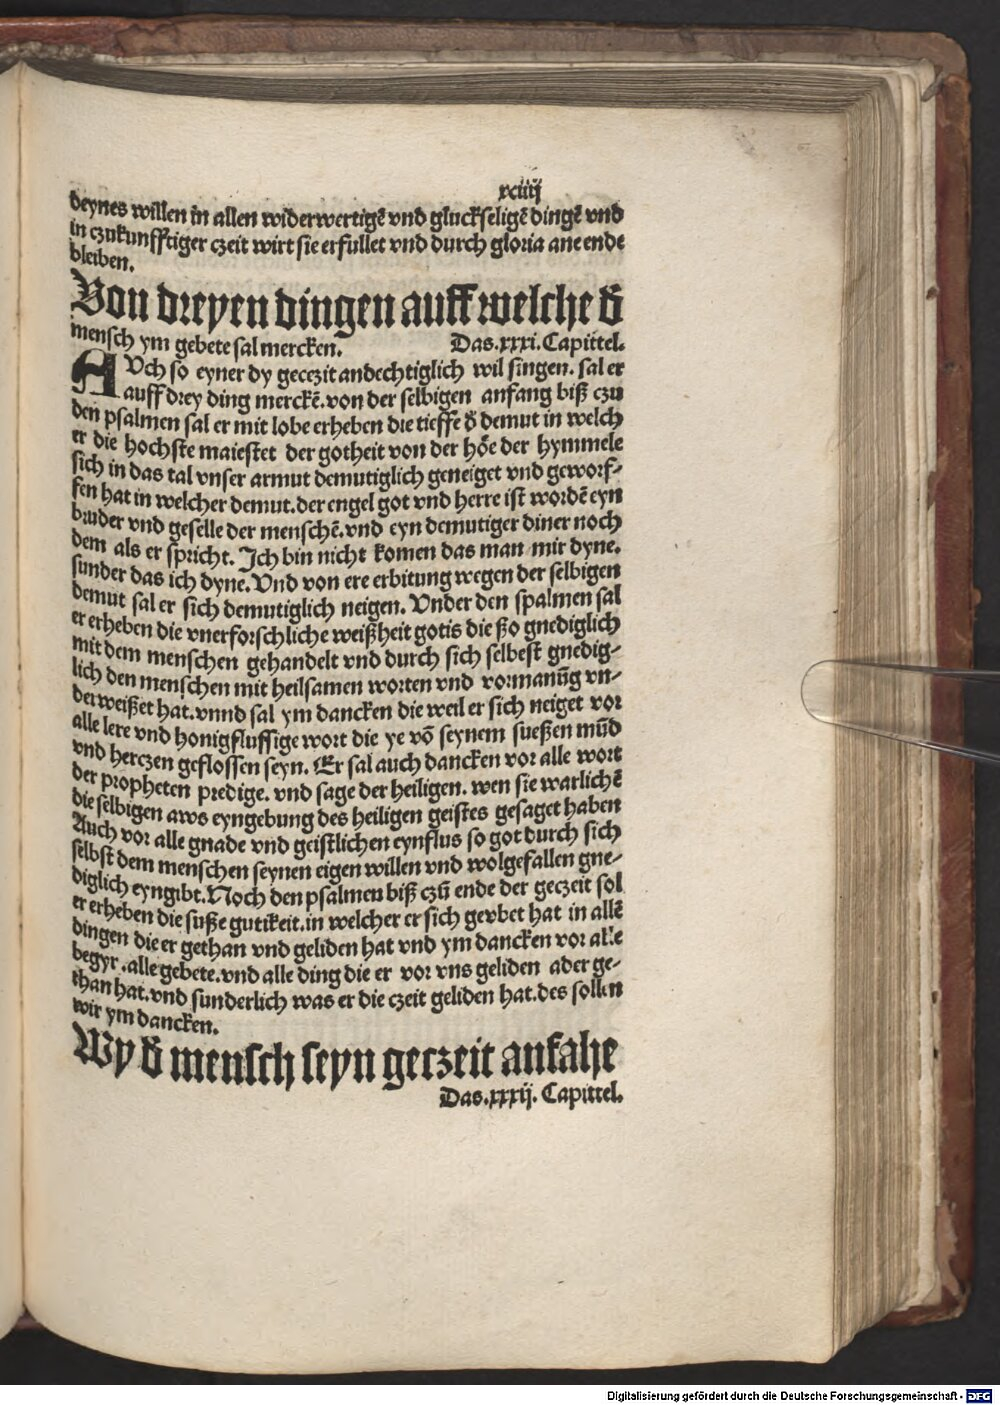 xciiij
deynes willen in allen widerwertigē vnd gluckseligē dingē vnd
in czukunfftiger czeit wirt sie erfullet vnd durch gloria ane ende
bleiben.
Von dreyen dingen auff welche d̄
mensch ym gebete sal mercken. Das.xxxi.Capittel.
AVch so eyner dy geczeit andechtiglich wil singen. sal er
auff drey ding merckē.von der selbigen anfang biß czu
den psalmen sal er mit lobe erheben die tieffe d̄ demut in welch
er die hochste maiestet der gotheit von der hoͤe der hymmele
sich in das tal vnser armut demutiglich geneiget vnd geworf-
fen hat in welcher demut.der engel got vnd herre ist wordē eyn
bruder vnd geselle der menschē.vnd eyn demutiger diner noch
dem als er spricht. Ich bin nicht komen das man mir dyne.
sunder das ich dyne.Vnd von ere erbitung wegen der selbigen
demut sal er sich demutiglich neigen. Vnder den spalmen sal
er erheben die vnerforschliche weißheit gotis die ßo gnediglich
mit dem menschen gehandelt vnd durch sich selbest gnedig-
lich den menschen mit heilsamen worten vnd vormanūg vn-
derweißet hat.vnnd sal ym dancken die weil er sich neiget vor
alle lere vnd honigflussige wort die ye vō seynem sueßen mūd
vnd herczen geflossen seyn. Er sal auch dancken vor alle wort
der propheten predige. vnd sage der heiligen. wen sie warlichē
die selbigen aws eyngebung des heiligen geistes gesaget haben
Auch vor alle gnade vnd geistlichen eynflus so got durch sich
selbst dem menschen seynen eigen willen vnd wolgefallen gne-
diglich eyngibt.Noch den psalmen biß czū ende der geczeit sol
er erheben die suße gutikeit.in welcher er sich gevbet hat in allē
dingen die er gethan vnd geliden hat vnd ym dancken vor alle
begyr.alle gebete.vnd alle ding die er vor vns geliden ader ge-
than hat.vnd sunderlich was er die czeit geliden hat.des sollen
wir ym dancken.
Wy d̄ mensch seyn geczeit anfahe
Das.xxxij.Capittel.
Digitalisierung gefördert durch die Deutsche Forschungsgemeinschaft - DFG